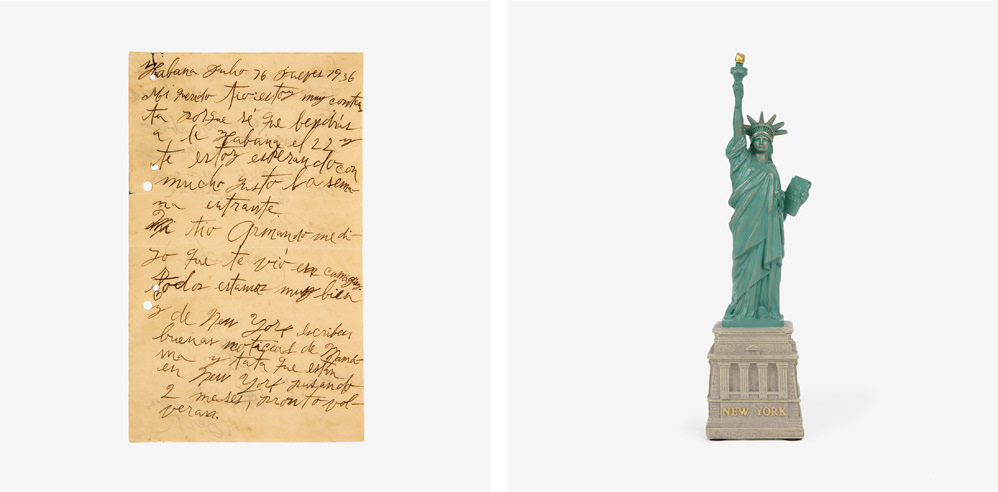 Habana Julio 16 Jueves 1936
Mi querido tio: estoy muy conten
ta porque sé que bendrás
a la Habana el 22 y
te estoy esperando con
mucho gusto la sema-
na entrante
Mi tio Armando me di-
jo que te vió en camagüey
todos estamos muy bien
y de New York escriben
buenas noticias de Mama-
ma y tata que están
en New York pasando
2 meses, pronto vol-
veran.
NEW YORK